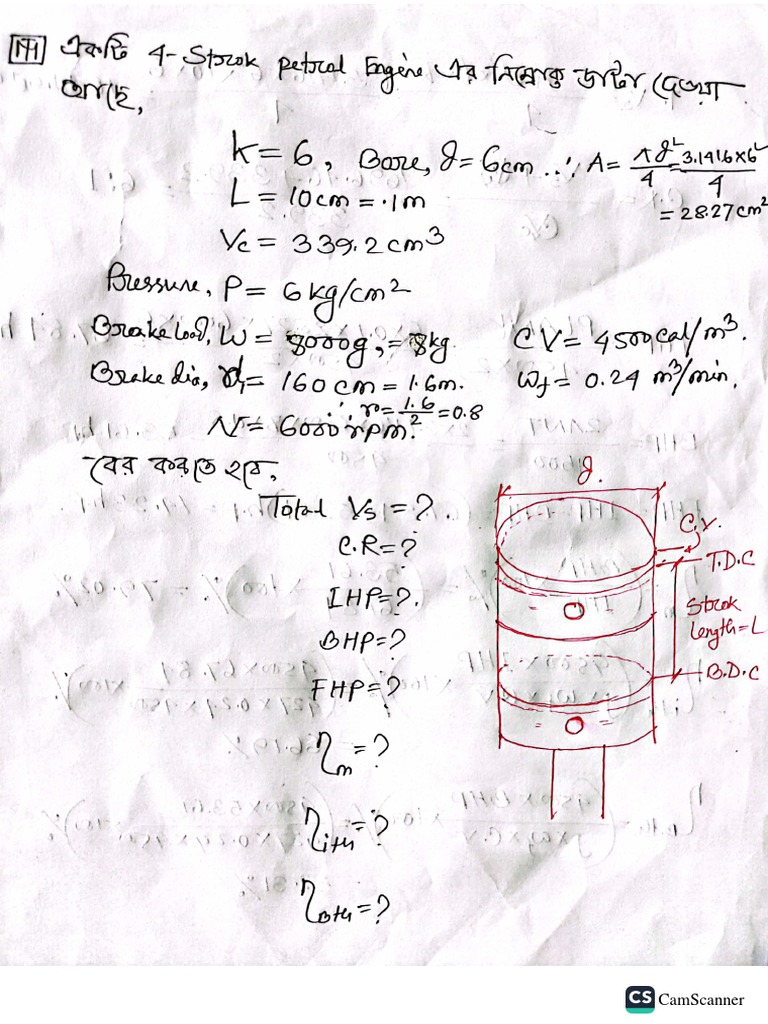 একটি 4-Strok petrol Engine এর নিম্নোক্ত ডাটা দেওয়া
আছে,
K = 6, Bore, d = 6cm ∴ A = πd²/4 = 3.1416×6²/4
= 28.27 cm²
L = 10cm = .1m
Vc = 339.2 cm³
Pressure, P = 6 kg/cm²
Brake load, W = 8000g, = 8kg. CV = 4500 cal/m³.
Brake dia, d₁ = 160 cm = 1.6m. Wf = 0.24 m³/min.
∴ r = 1.6/2 = 0.8
N = 6000 rpm.
বের করতে হবে,
Total Vs = ?
C.R = ?
IHP = ?.
BHP = ?
FHP = ?
ηm = ?
ηith = ?
ηBth = ?
d.
C.V.
T.D.C
Strok
length = L
B.D.C
CS CamScanner